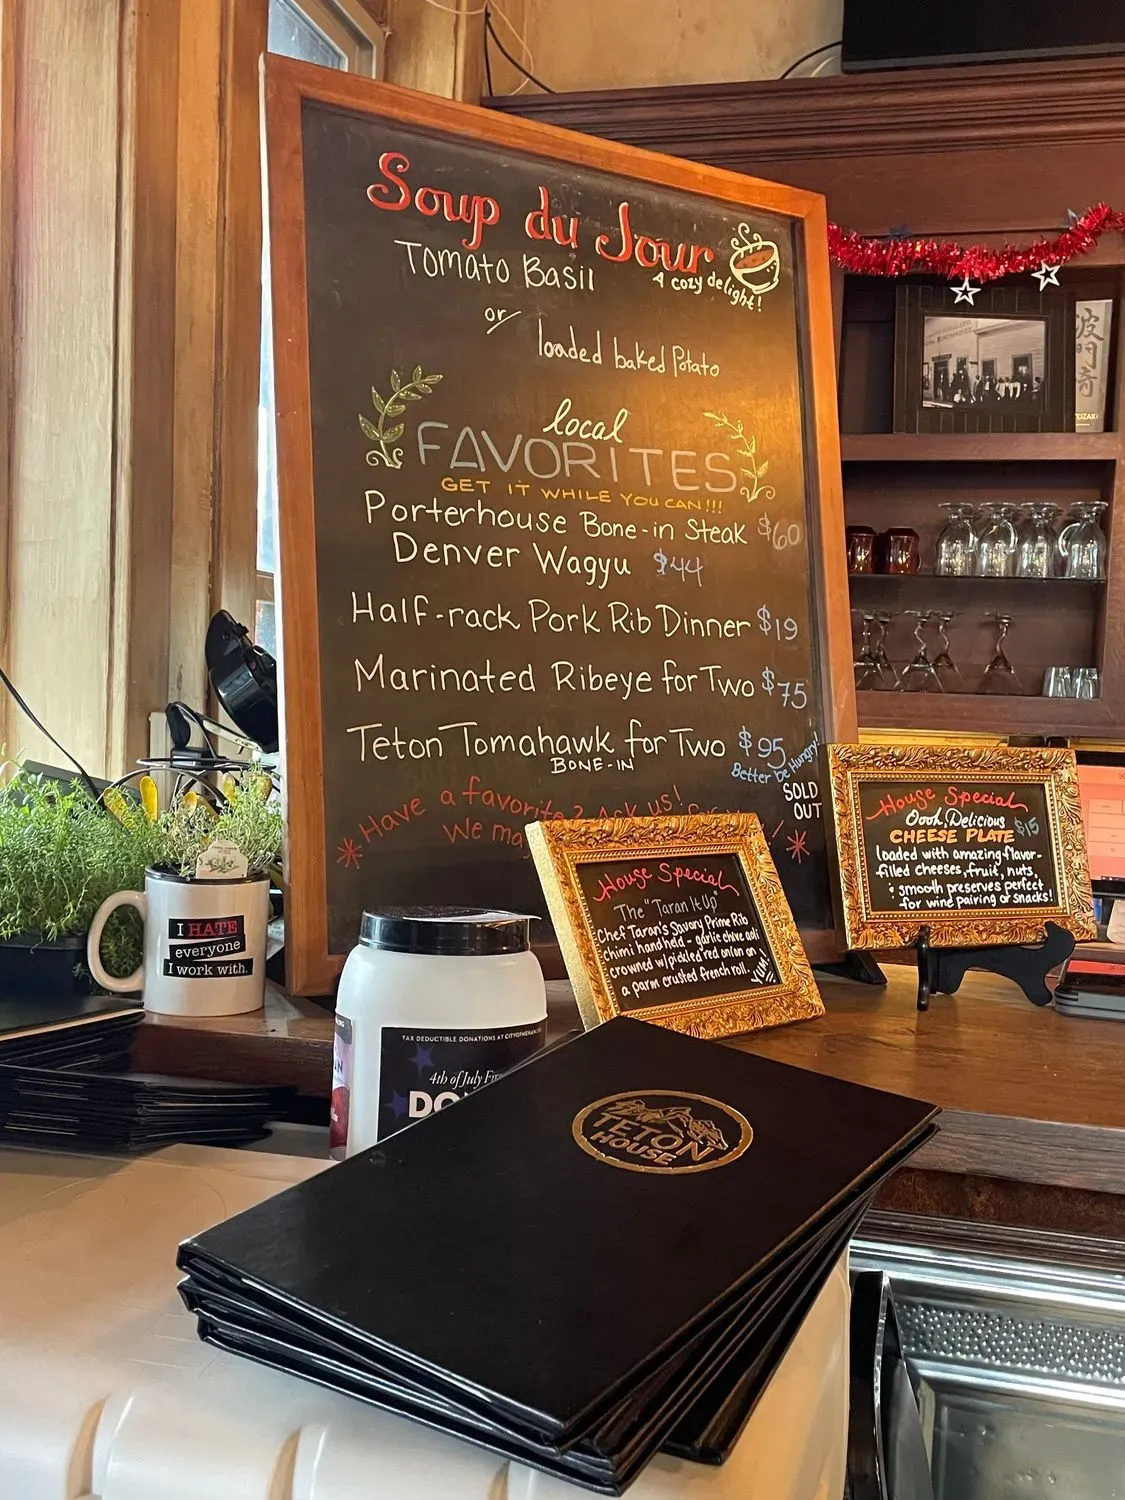 Soup du Jour
A cozy delight!
Tomato Basil
or
loaded baked Potato
local
FAVORITES
GET IT WHILE YOU CAN!!!
Porterhouse Bone-in Steak $60
Denver Wagyu $44
Half-rack Pork Rib Dinner $19
Marinated Ribeye for Two $75
Teton Tomahawk for Two $95
BONE-IN
Better be Hungry!
SOLD
OUT
*Have a favorite? Ask us!
We may
House Special
Oooh, Delicious
CHEESE PLATE $15
loaded with amazing flavor-
filled cheeses, fruit, nuts,
smooth preserves perfect
for wine pairing or snacks!
House Special
The "Taran It Up"
Chef Taran's Savory Prime Rib
chimi handheld - garlic chive aoli
crowned w/pickled red onion on
a parm crusted french roll.
YUM!
I HATE
everyone
I work with.
TAX DEDUCTIBLE DONATIONS AT
4th of July
TETON
HOUSE
波